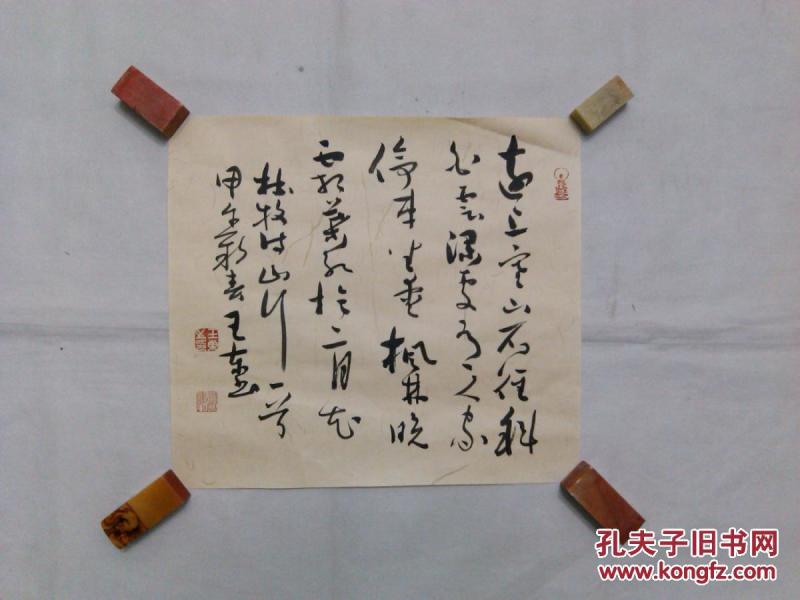 远上寒山石径斜
白云深处有人家
停车坐爱枫林晚
霜叶红于二月花
杜牧诗山行一首
甲午新春王
孔夫子旧书网
www.kongfz.com